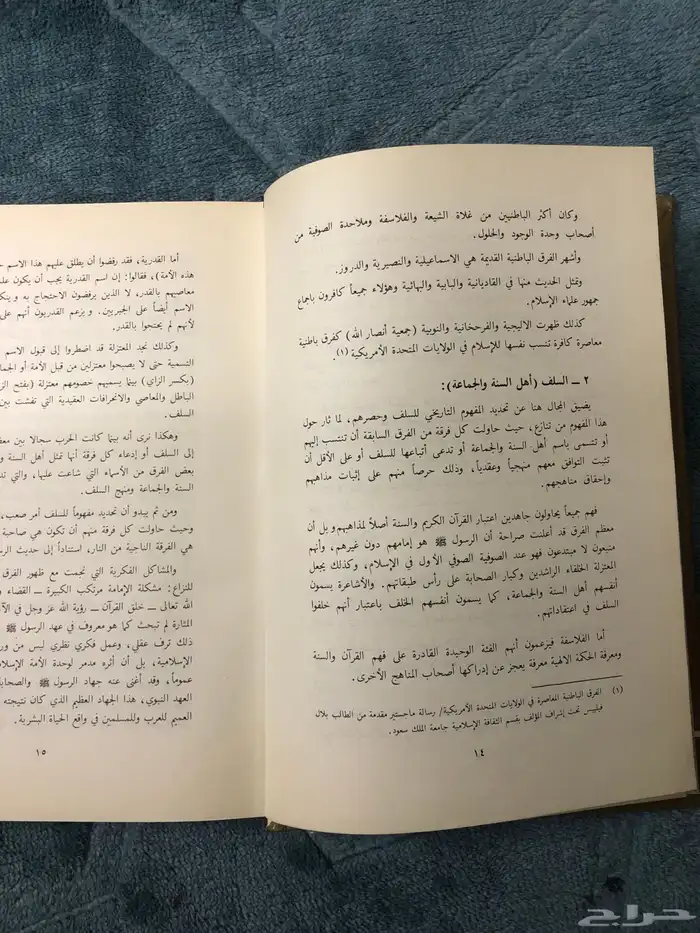 وكان أكثر الباطنيين من غلاة الشيعة والفلاسفة وملاحدة الصوفية من
أصحاب وحدة الوجود والحلول.
وأشهر الفرق الباطنية القديمة هي الاسماعيلية والنصيرية والدروز.
وتمثل الحديث منها في القاديانية والبابية والبهائية وهؤلاء جميعاً كافرون باجماع
جمهور علماء الإسلام.
كذلك ظهرت الاليجية والفرحخانية والنوبية (جمعية أنصار الله) كفرق باطنية
معاصرة كافرة تنسب نفسها للإسلام في الولايات المتحدة الأمريكية (١).
٢ ــ السلف (أهل السنة والجماعة):
يضيق المجال هنا عن تحديد المفهوم التاريخي للسلف وحصرهم، لما ثار حول
هذا المفهوم من تنازع، حيث حاولت كل فرقة من الفرق السابقة أن تنتسب إليهم
أو تتسمى باسم أهل السنة والجماعة أو تدعى أتباعها للسلف أو على الأقل أن
تثبت التوافق معهم منهجياً وعقدياً، وذلك حرصاً منهم على إثبات مذاهبهم
وإحقاق مناهجهم.
فهم جميعاً يحاولون جاهدين اعتبار القرآن الكريم والسنة أصلاً لمذاهبهم وبل أن
معظم الفرق قد أعلنت صراحة أن الرسول ﷺ هو إمامهم دون غيرهم، وأنهم
متبعون لا مبتدعون فهو عند الصوفية الصوفي الأول في الإسلام، وكذلك يجعل
المعتزلة الخلفاء الراشدين وكبار الصحابة على رأس طبقاتهم. والأشاعرة يسمون
أنفسهم أهل السنة والجماعة، كما يسمون أنفسهم الخلف باعتبار أنهم خلفوا
السلف في اعتقاداتهم.
أما الفلاسفة فيزعمون أنهم الفئة الوحيدة القادرة على فهم القرآن والسنة
ومعرفة الحكمة الالهية معرفة يعجز عن إدراكها أصحاب المناهج الأخرى.
(١) الفرق الباطنية المعاصرة في الولايات المتحدة الأمريكية/ رسالة ماجستير مقدمة من الطالب بلال
فيليبس تحت إشراف المؤلف بقسم الثقافة الإسلامية جامعة الملك سعود.
١٤
أما القدرية، فقد رفضوا أن يطلق عليهم هذا الاسم
هذه الأمة)، فقالوا: إن اسم القدرية يجب أن يكون
معاصيهم بالقدر، لا الذين يرفضون الاحتجاج به
الاسم أيضاً على الجبريين. ويزعم القدريون أنهم
لأنهم لم يحتجوا بالقدر.
وكذلك نجد المعتزلة قد اضطروا إلى قبول الاسم
التسمية حتى لا يصبحوا معتزلين من قبل الأمة أو
(بكسر الزاي) بينما يسميهم خصومهم معتزلة (بفتح
الباطل والمعاصي والانحرافات العقيدية التي تفشت بين
السلف.
وهكذا نرى أنه بينما كانت الحرب سجالا بين
إلى السلف أو إدعاء كل فرقة أنها تمثل أهل السنة
بعض الفرق من الأسماء التي شاعت عليها، والتي
السنة والجماعة ومنهج السلف.
ومن ثم يبدو أن تحديد مفهوماً للسلف أمر صعب،
وحيث حاولت كل فرقة منهم أن تكون هي صاحبة
هي الفرقة الناجية من النار، استناداً إلى حديث
والمشاكل الفكرية التي نجمت مع ظهور الفرق
للنزاع: مشكلة الإمامة مرتكب الكبيرة ــ القضاء
الله تعالى ــ خلق القرآن ــ رؤية الله عز وجل في
المثارة لم تبحث كما هو معروف في عهد الرسول ﷺ
ذلك ترف عقلي، وعمل فكري نظري ليس من
الإسلامية، بل أن أثره مدمر لوحدة الأمة
عموماً، وقد أغنى عنه جهاد الرسول ﷺ
العهد النبوي، هذا الجهاد العظيم الذي كان نتيجته
العميم للعرب وللمسلمين في واقع الحياة البشرية.
١٥
حراج